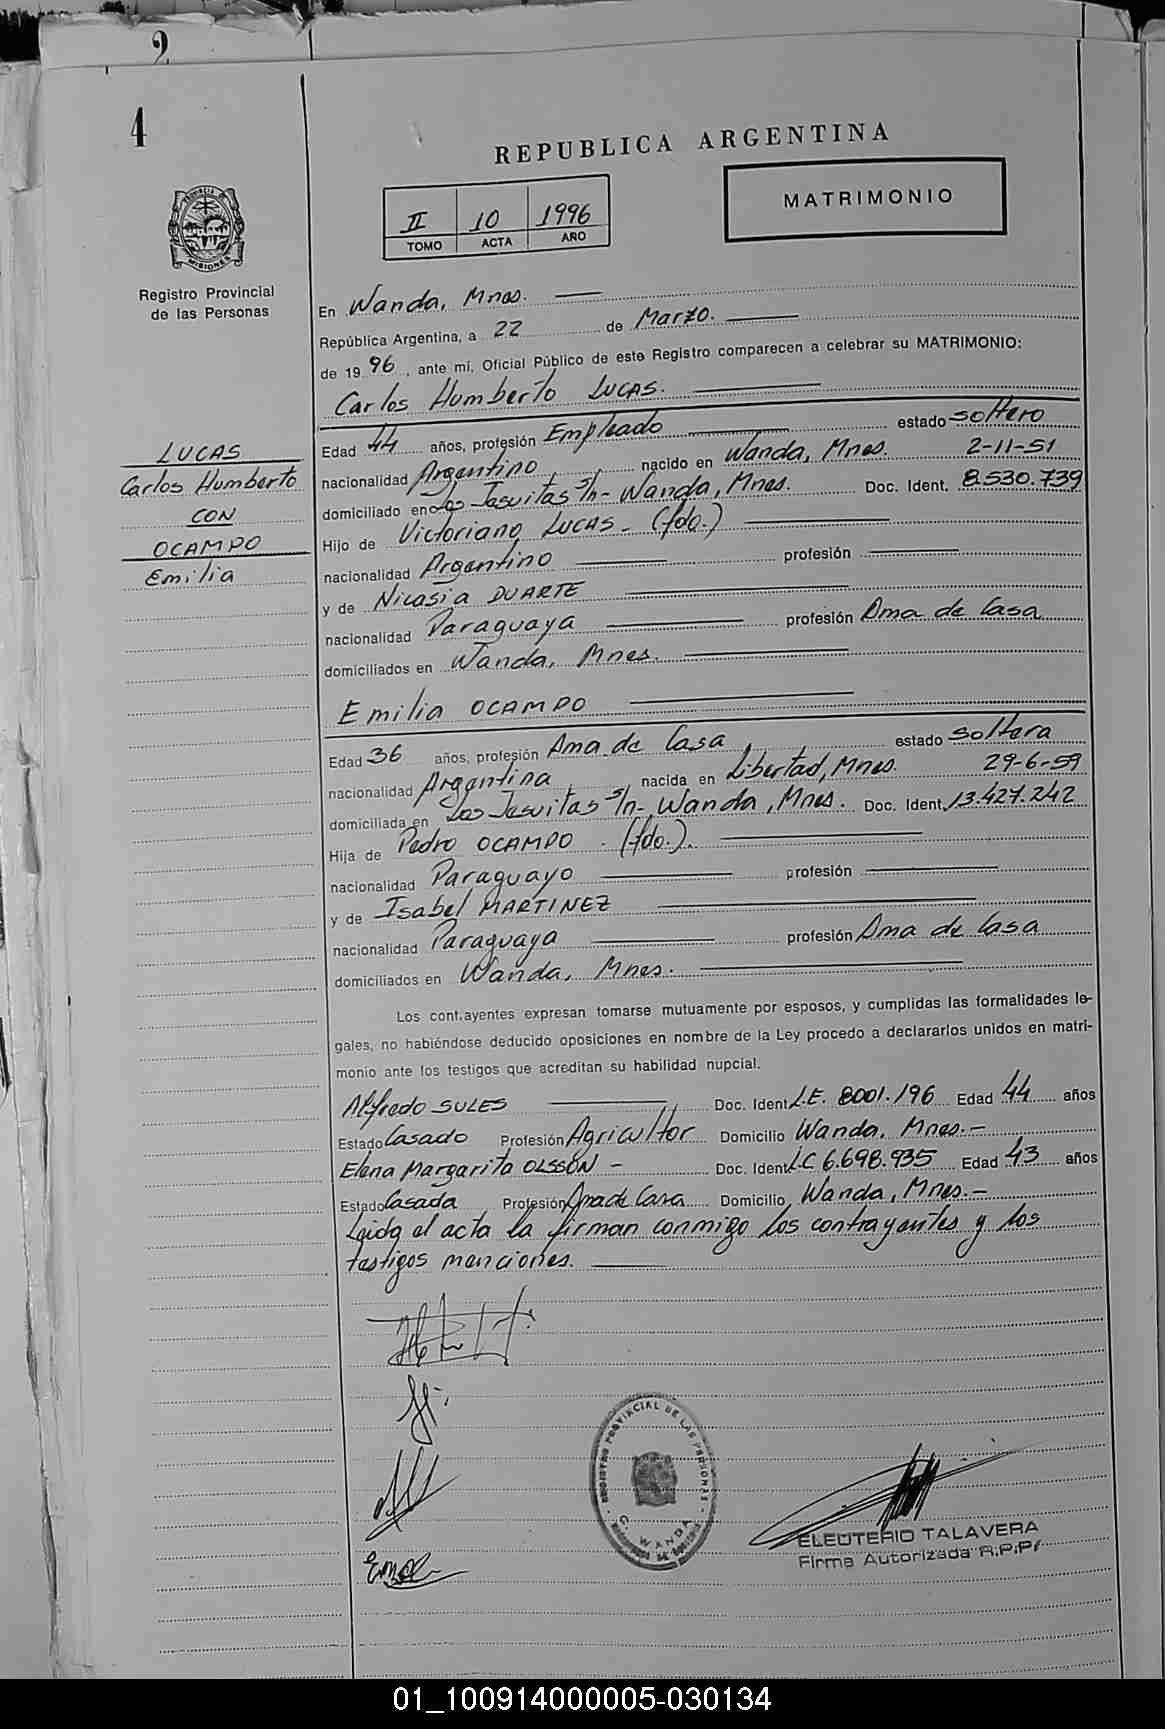 2
4
REPUBLICA ARGENTINA
II 10 1996
TOMO ACTA AÑO
MATRIMONIO
PROVINCIA DE MISIONES
Registro Provincial
de las Personas
En Wanda, Mnes.
República Argentina, a 22 de Marzo.
de 19 96, ante mí, Oficial Público de este Registro comparecen a celebrar su MATRIMONIO:
Carlos Humberto LUCAS.
LUCAS
Carlos Humberto
CON
OCAMPO
Emilia
Edad 44 años, profesión Empleado estado soltero
nacionalidad Argentino nacido en Wanda, Mnes. 2-11-51
domiciliado en Los Jesuitas S/n- Wanda, Mnes. Doc. Ident. 8.530.739
Hijo de Victoriano LUCAS - (fdo.)
nacionalidad Argentino profesión
y de Nicasia DUARTE
nacionalidad Paraguaya profesión Ama de Casa
domiciliados en Wanda, Mnes.
Emilia OCAMPO
Edad 36 años, profesión Ama de Casa estado soltera
nacionalidad Argentina nacida en Libertad, Mnes. 29-6-59
domiciliada en Los Jesuitas S/n- Wanda, Mnes. Doc. Ident. 13.427.242
Hija de Pedro OCAMPO . (fdo.).
nacionalidad Paraguayo profesión
y de Isabel MARTINEZ
nacionalidad Paraguaya profesión Ama de Casa
domiciliados en Wanda, Mnes.
Los cont.ayentes expresan tomarse mutuamente por esposos, y cumplidas las formalidades le-
gales, no habiéndose deducido oposiciones en nombre de la Ley procedo a declararlos unidos en matri-
monio ante los testigos que acreditan su habilidad nupcial.
Alfredo SULES Doc. Ident. L.E. 8001.196 Edad 44 años
Estado Casado Profesión Agricultor Domicilio Wanda, Mnes.-
Elena Margarita OLSSON - Doc. Ident. L.C 6.698.935 Edad 43 años
Estado Casada Profesión Ama de Casa Domicilio Wanda, Mnes.-
Leida el acta la firman conmigo los contrayentes y los
testigos menciones.
REGISTRO PROVINCIAL DE LAS PERSONAS
WANDA
ELEUTERIO TALAVERA
Firma Autorizada R.P.P.
01_100914000005-030134